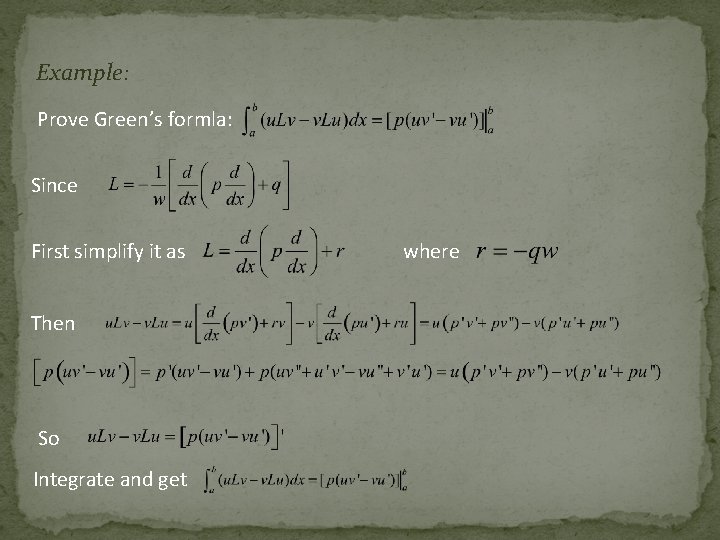 Example:
Prove Green’s formla: ∫_a^b (u.Lv − v.Lu)dx = [p(uv'− vu')]|_a^b
Since L = −1/w [d/dx (p d/dx) + q]
First simplify it as L = d/dx (p d/dx) + r where r = −qw
Then uLv − vLu = u[d/dx (pv') + rv] − v[d/dx (pu') + ru] = u(p'v'+ pv'') − v(p'u'+ pu'')
[p(uv'− vu')]' = p'(uv'− vu') + p(uv''+ u'v'− vu''+ v'u') = u(p'v'+ pv'') − v(p'u'+ pu'')
So u.Lv − v.Lu = [p(uv'− vu')]'
Integrate and get ∫_a^b (uLv − vLu)dx = [p(uv'− vu')]|_a^b